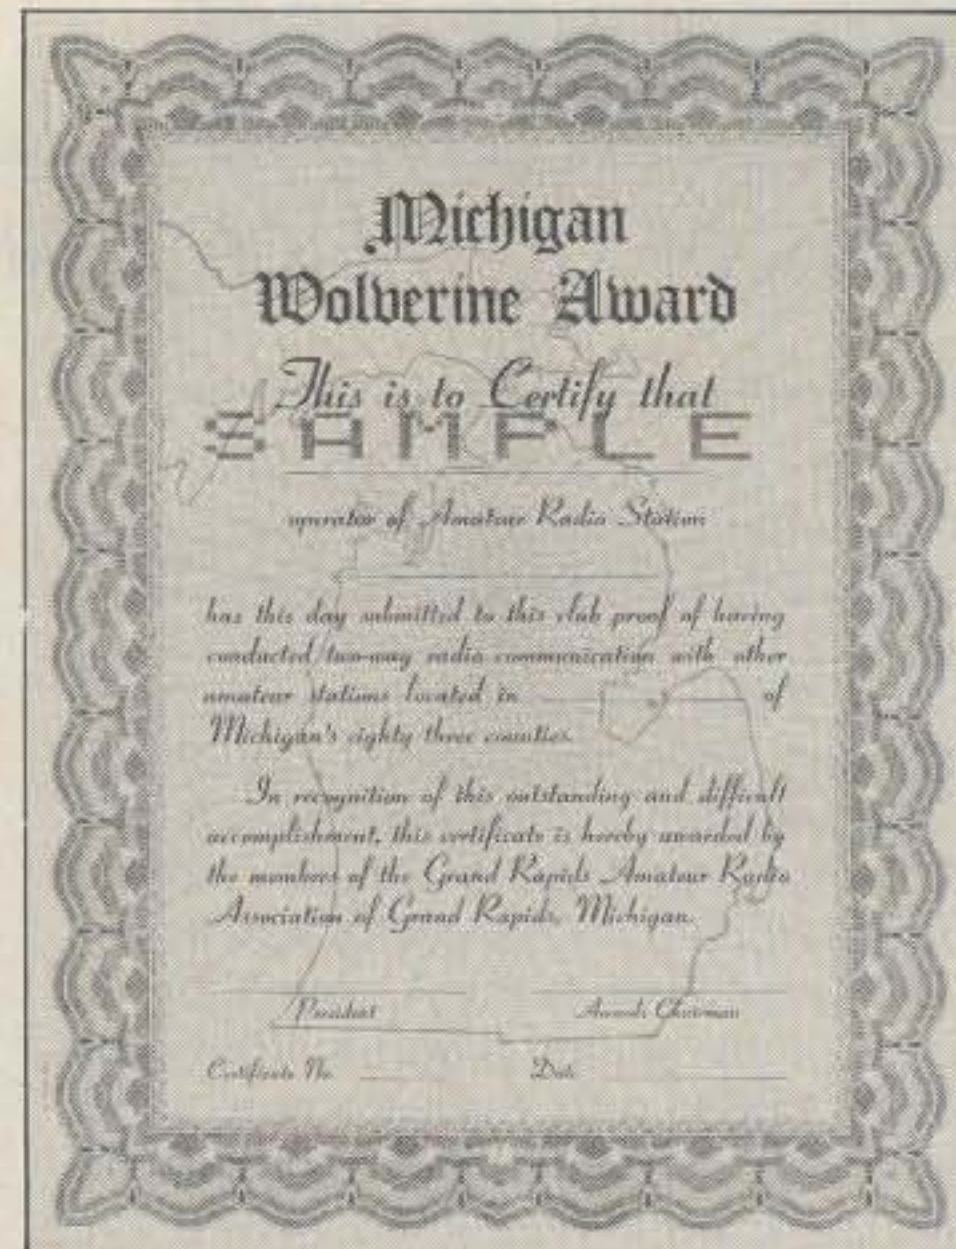 Michigan
Wolverine Award
This is to Certify that
SAMPLE
operator of Amateur Radio Station
has this day submitted to this club proof of having
conducted two-way radio communication with other
amateur stations located in of
Michigan's eighty three counties.
In recognition of this outstanding and difficult
accomplishment, this certificate is hereby awarded by
the members of the Grand Rapids Amateur Radio
Association of Grand Rapids, Michigan.
President Awards Chairman
Certificate No. Date